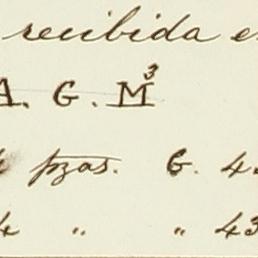 recibida
A. G. M³
pzas. G. 4
4 " " 43